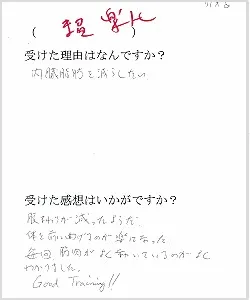 ( 超 楽に )
受けた理由はなんですか？
内臓脂肪を減らしたい
受けた感想はいかがですか？
腹まわりが減ったようだ
体を前にあげるのが楽になった
毎回 筋肉がよく動いているのがよく
わかりました。
Good Training!!